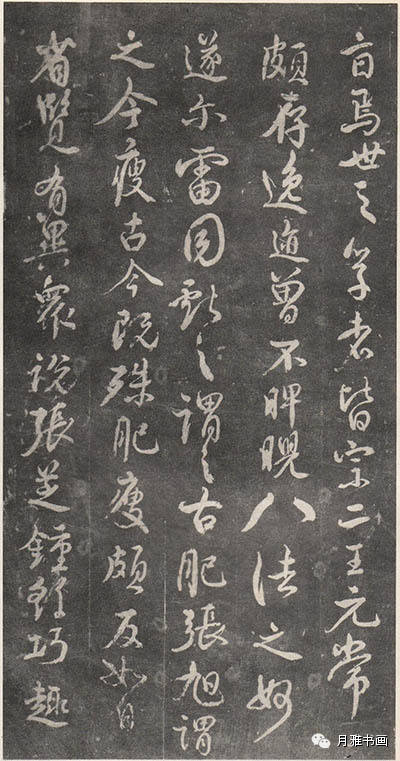 焉世之學者皆宗二王元常
頗存逸迹曾不睥睨八法之妙
遂尔雷同獻之謂之古肥張旭謂
之今瘦古今既殊肥瘦頗反如自
省覽有異衆說張芝鍾繇巧趣
月雅书画